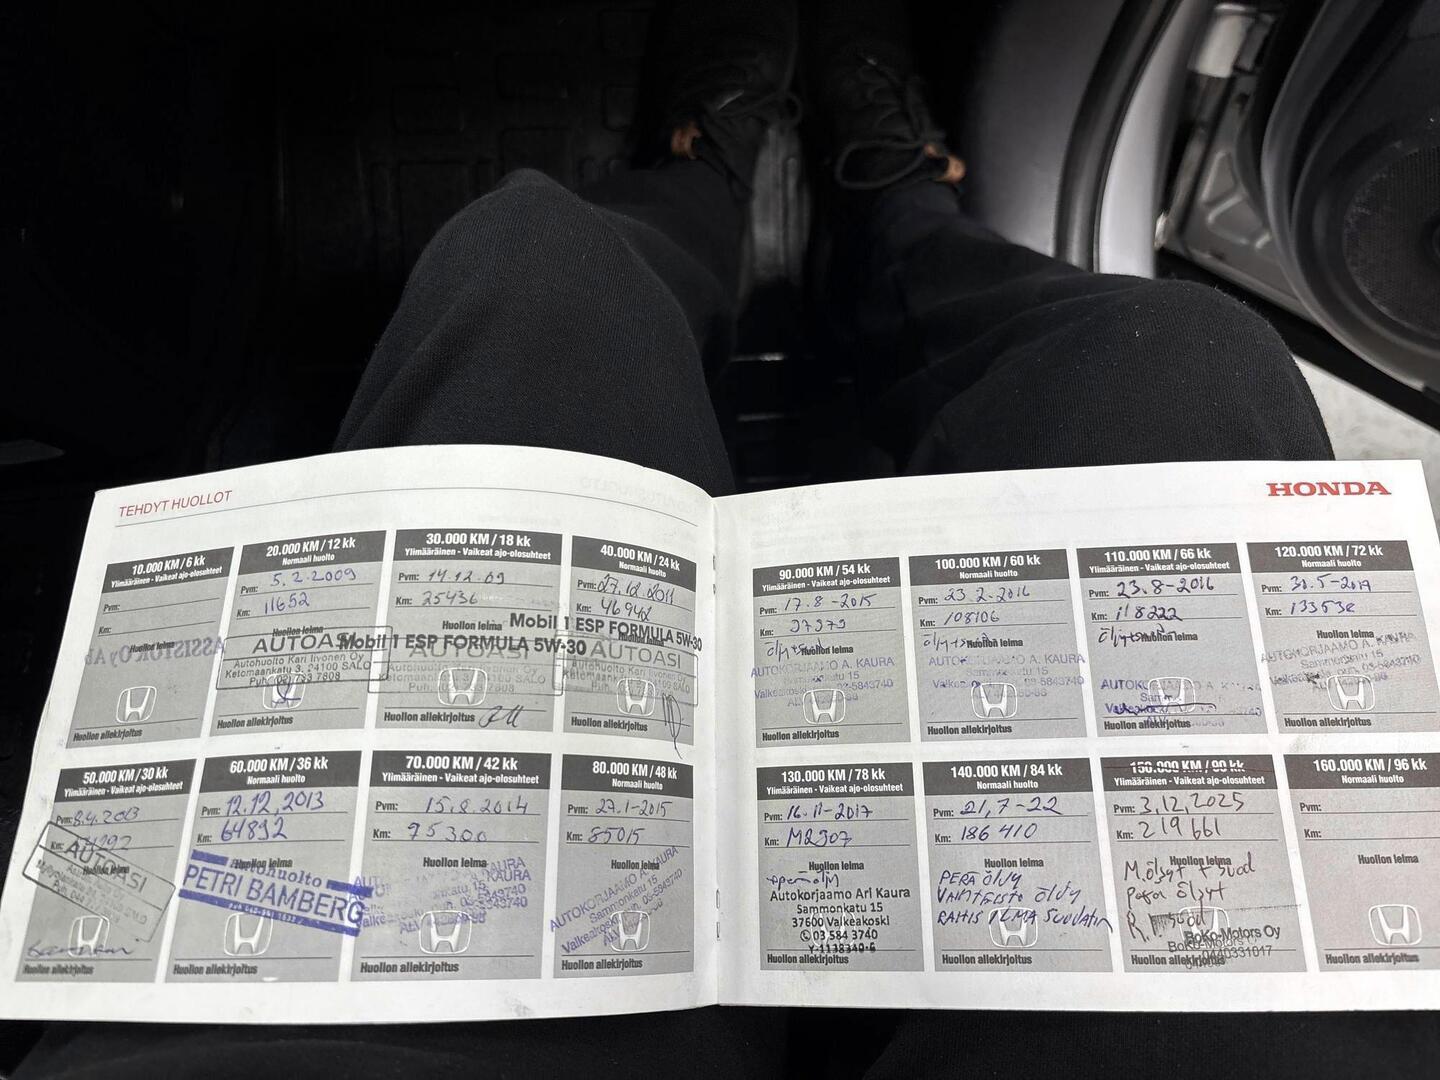 TEHDYT HUOLLOT
HONDA
10.000 KM / 6 kk
Ylimääräinen - Vaikeat ajo-olosuhteet
Pvm:
Km:
Huollon leima
ASSISTOR Oy Ab
Huollon allekirjoitus
20.000 KM / 12 kk
Normaali huolto
Pvm: 5.2.2009
Km: 11652
Huollon leima
AUTOASI
Autohuolto Kari Iivonen Oy
Ketomaankatu 3, 24100 SALO
Puh. (02) 733 7808
30.000 KM / 18 kk
Ylimääräinen - Vaikeat ajo-olosuhteet
Pvm: 14.12.09
Km: 25436
Huollon leima
Mobil 1 ESP FORMULA 5W-30
AUTOASI
Huollon allekirjoitus
40.000 KM / 24 kk
Normaali huolto
Pvm: 27.12.2011
Km: 46942
Mobil 1 ESP FORMULA 5W-30
AUTOASI
Huollon allekirjoitus
50.000 KM / 30 kk
Ylimääräinen - Vaikeat ajo-olosuhteet
Pvm: 8.4.2013
Km:
Huollon leima
AUTOASI
Huollon allekirjoitus
60.000 KM / 36 kk
Normaali huolto
Pvm: 12.12.2013
Km: 64892
Huollon leima
Autohuolto
PETRI BAMBERG
Huollon allekirjoitus
70.000 KM / 42 kk
Ylimääräinen - Vaikeat ajo-olosuhteet
Pvm: 15.8.2014
Km: 75300
Huollon leima
Huollon allekirjoitus
80.000 KM / 48 kk
Normaali huolto
Pvm: 27.1-2015
Km: 85015
Huollon leima
AUTOKORJAAMO A. KAURA
Sammonkatu 15
Huollon allekirjoitus
90.000 KM / 54 kk
Ylimääräinen - Vaikeat ajo-olosuhteet
Pvm: 17.8-2015
Km: 97379
Huollon leima
AUTOKORJAAMO A. KAURA
Sammonkatu 15
Huollon allekirjoitus
100.000 KM / 60 kk
Normaali huolto
Pvm: 23.2-2016
Km: 108106
Huollon leima
AUTOKORJAAMO A. KAURA
Sammonkatu 15
Huollon allekirjoitus
110.000 KM / 66 kk
Ylimääräinen - Vaikeat ajo-olosuhteet
Pvm: 23.8-2016
Km: 118222
Huollon leima
Huollon allekirjoitus
120.000 KM / 72 kk
Normaali huolto
Pvm: 30.5-2017
Km: 133538
Huollon leima
Sammonkatu 15
Huollon allekirjoitus
130.000 KM / 78 kk
Ylimääräinen - Vaikeat ajo-olosuhteet
Pvm: 16.11-2017
Km: 142307
Huollon leima
Autokorjaamo Ari Kaura
Sammonkatu 15
37600 Valkeakoski
03 584 3740
Y-1138340-6
Huollon allekirjoitus
140.000 KM / 84 kk
Normaali huolto
Pvm: 21.7-22
Km: 186410
Huollon leima
PERÄ ÖLJY
VAIHTEISTO ÖLJY
RAITIS ILMA SUODATIN
Huollon allekirjoitus
150.000 KM / 90 kk
Ylimääräinen - Vaikeat ajo-olosuhteet
Pvm: 3.12.2025
Km: 219661
Huollon leima
M.öljyt + suod
Perä öljyt
BoKo-Motors Oy
0440331017
Huollon allekirjoitus
160.000 KM / 96 kk
Normaali huolto
Pvm:
Km:
Huollon leima
Huollon allekirjoitus